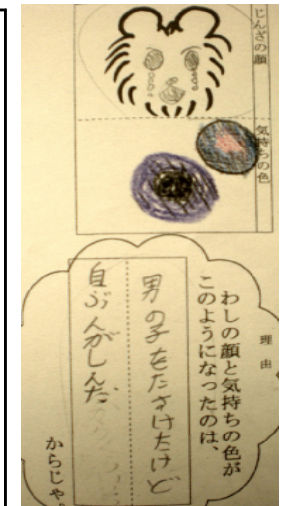 じんざの顔
気持ちの色
理由
わしの顔と気持ちの色が
このようになったのは、
男の子をたすけたけど
自ぶんがしんだ
からじゃ。